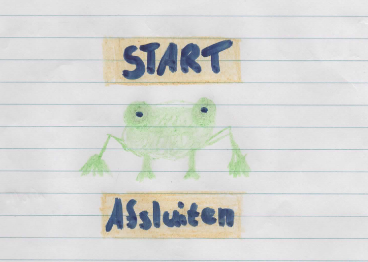 START
Afsluiten